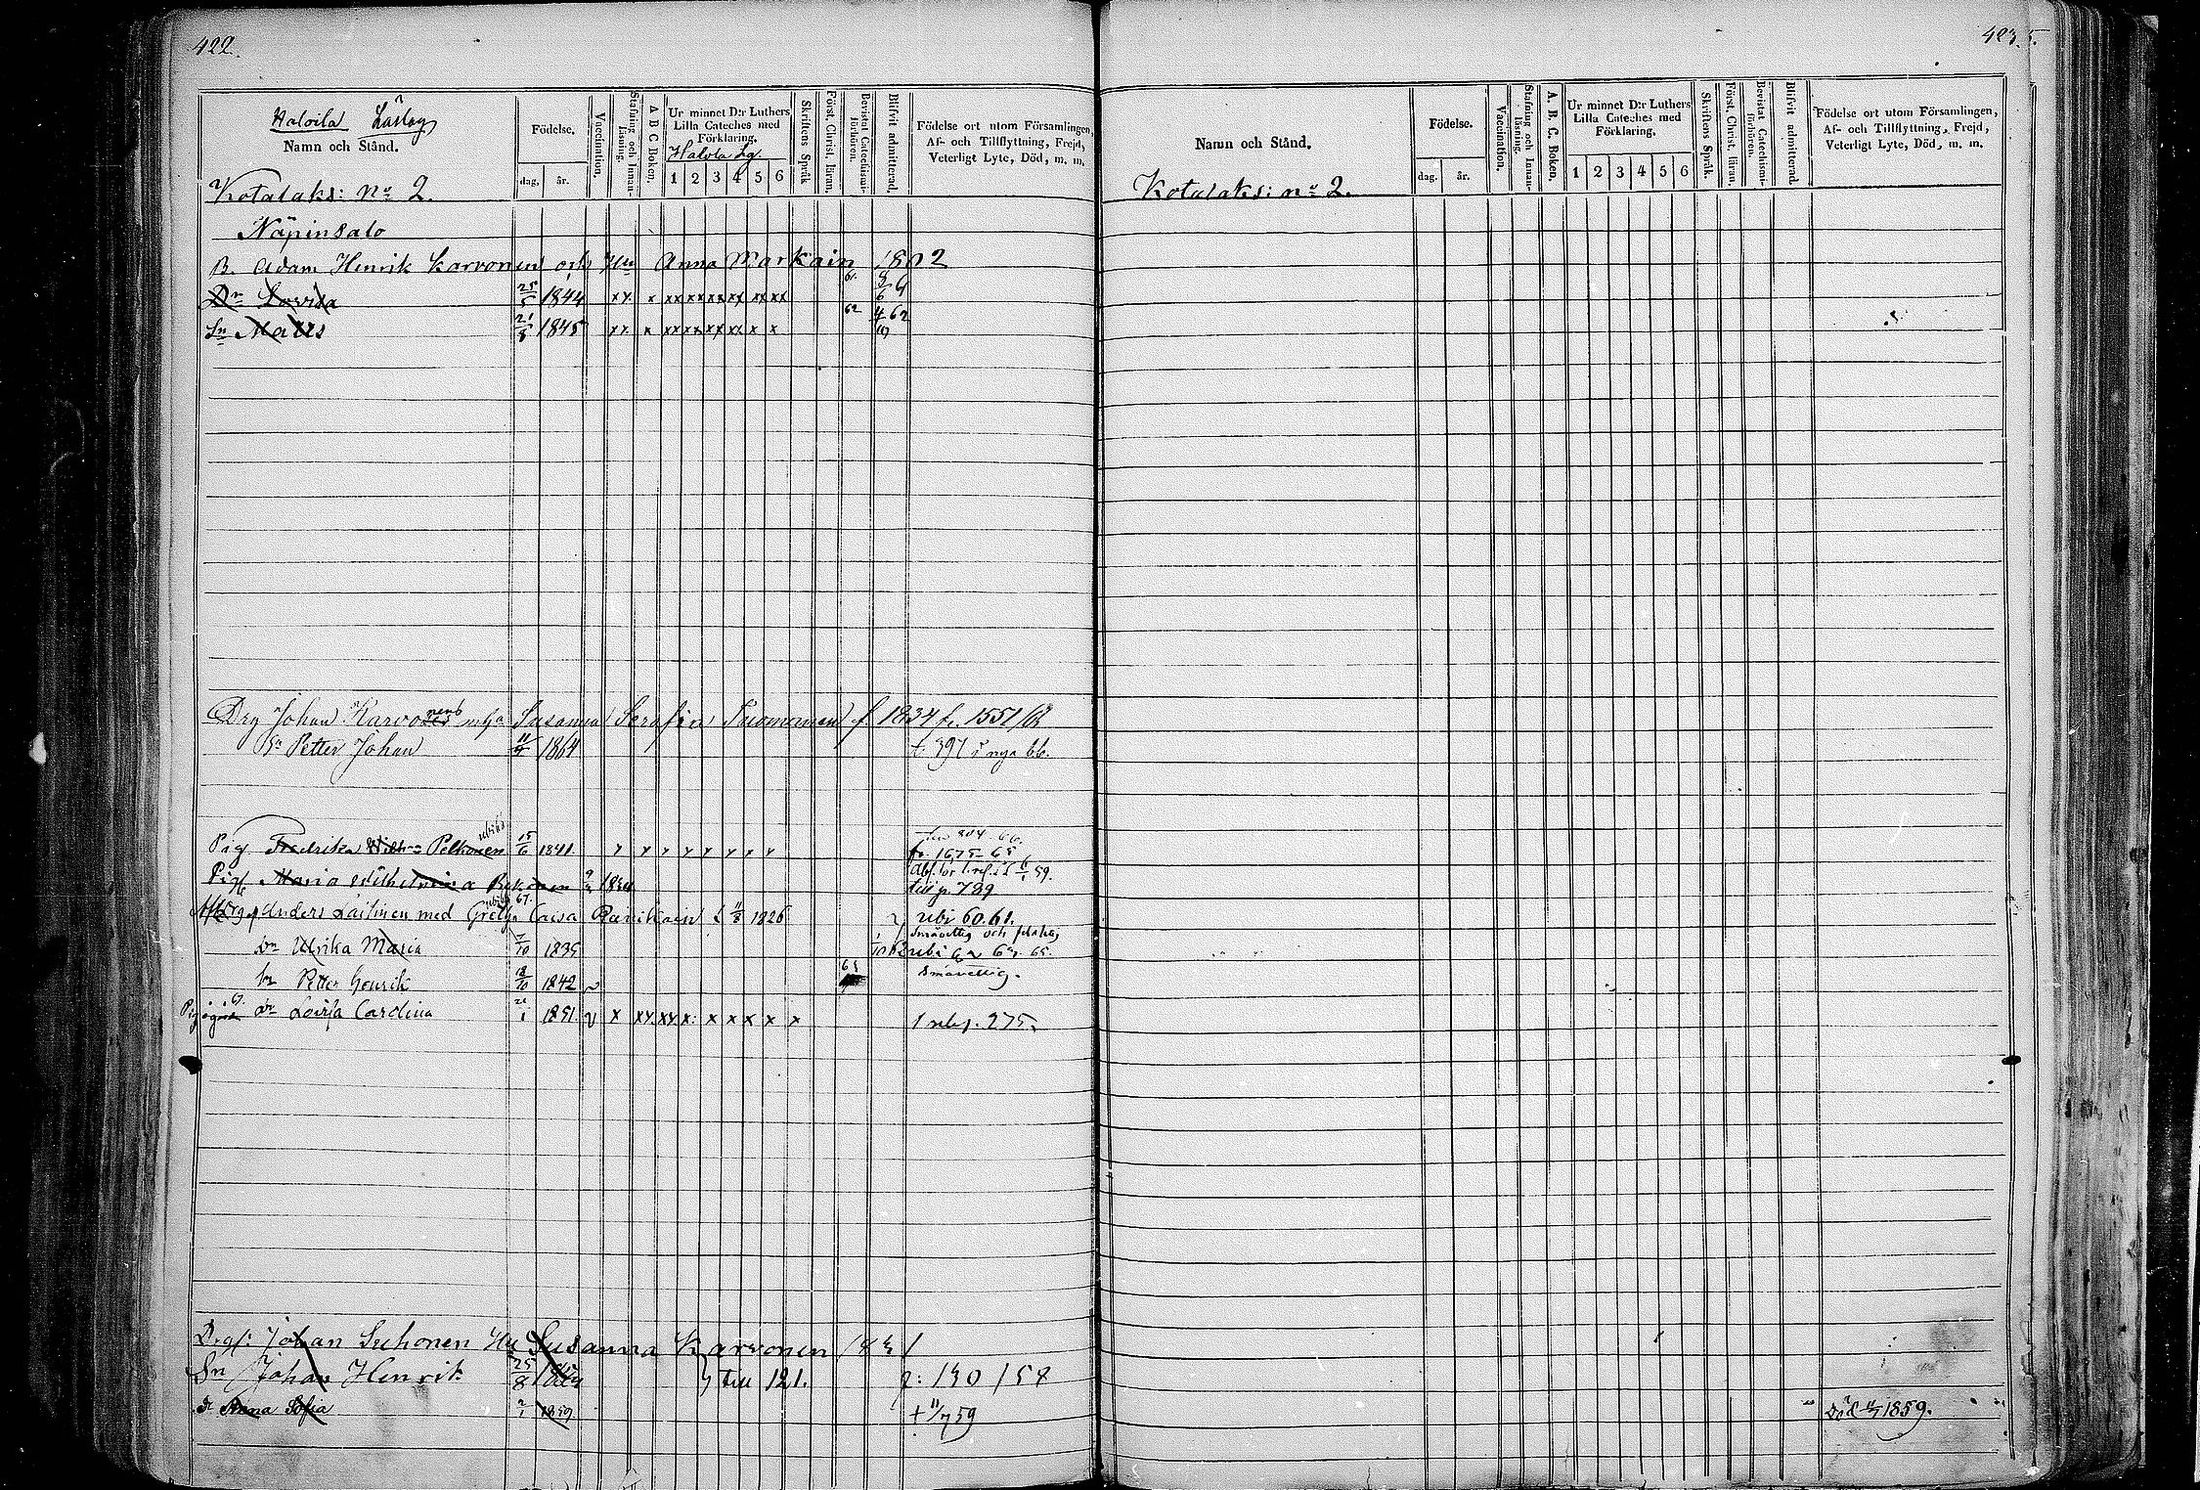 422.
Haloila Läslag
Namn och Stånd.
Födelse.
dag. år.
Vaccination.
Stafning och Innanläsning.
A B C Boken.
Ur minnet D:r Luthers Lilla Cateches med Förklaring.
Halola Lg.
1 2 3 4 5 6
Skriftens Språk
Först. Christ. läran.
Bevistat Catechismi-förhören.
Blifvit admitterad.
Födelse ort utom Församlingen, Af- och Tillflyttning, Frejd, Veterligt Lyte, Död, m. m.
Kotalaks: No 2.
Näpinsalo
B. Adam Henrik Karvonen och Hu Anna Markain 1802
Dr Lovisa 25/5 1844 xx x xx xx xx xx xx xx 61.
Sn Matts 21/8 1845 xx x xx xx xx xx x x 62 4/10 62
Drg Johan Karvonens Susanna Serafia Tuomainen f. 1834 fr. 1551/
Sn Petter Johan 1864 t. 397 i nya bb.
Pig Fredrika Pelkonen 15/6 1841 x x x x x x x x
fr. 1675 - 65
Pig Maria Wilhelmina
till p. 789
Anders Laitinen med Greta Caisa 11/8 1826 ubi 60.61.
dr Ulrika Maria 7/10 1835 ubi
Sn Petter Henrik 1842 v 65 Småvettig.
Pig dr Lovisa Carolina 1851. v x xx xx x: x x x x x
Drg: Johan Suhonen Hu Susanna Karvonen 1831
Sn Johan Henrik 25/8 till 121. 130/58
dr Anna Sofia 2/1 1859 + 11/7 59
423.
Namn och Stånd.
Födelse.
dag. år.
Vaccination.
Stafning och Innanläsning.
A. B. C. Boken.
Ur minnet D:r Luthers Lilla Cateches med Förklaring.
1 2 3 4 5 6
Skriftens Språk.
Först. Christ. läran.
Bevistat Catechismi-förhören.
Blifvit admitterad.
Födelse ort utom Församlingen, Af- och Tillflyttning, Frejd, Veterligt Lyte, Död, m. m.
Kotalaks: No 2.
Död 11/7 1859.